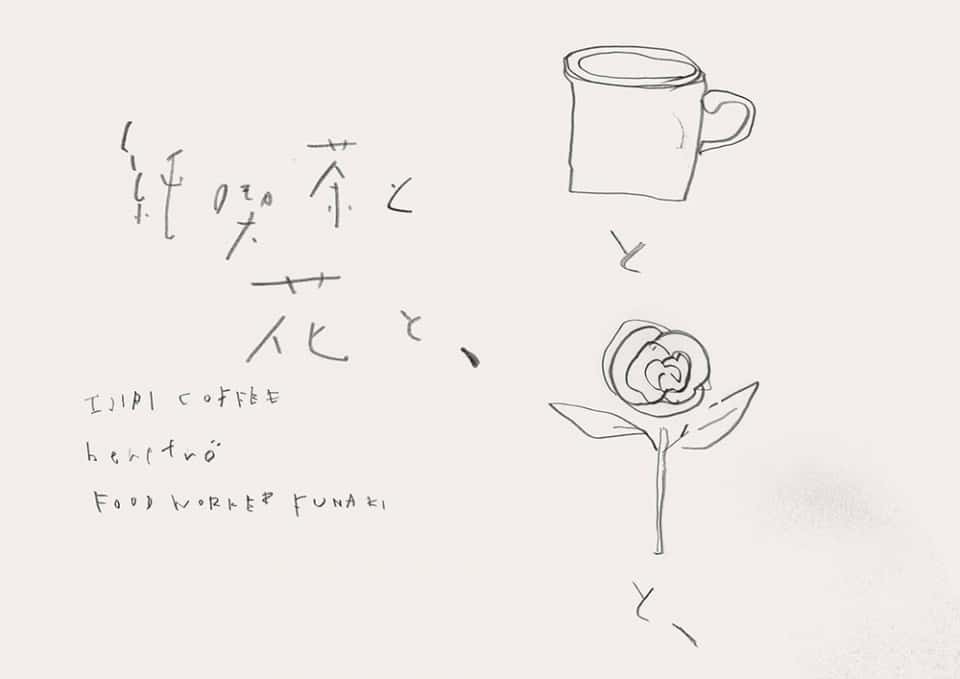 純喫茶と
花と、
IJIRI COFFEE
FOOD WORKER FUNAKI
と
と、